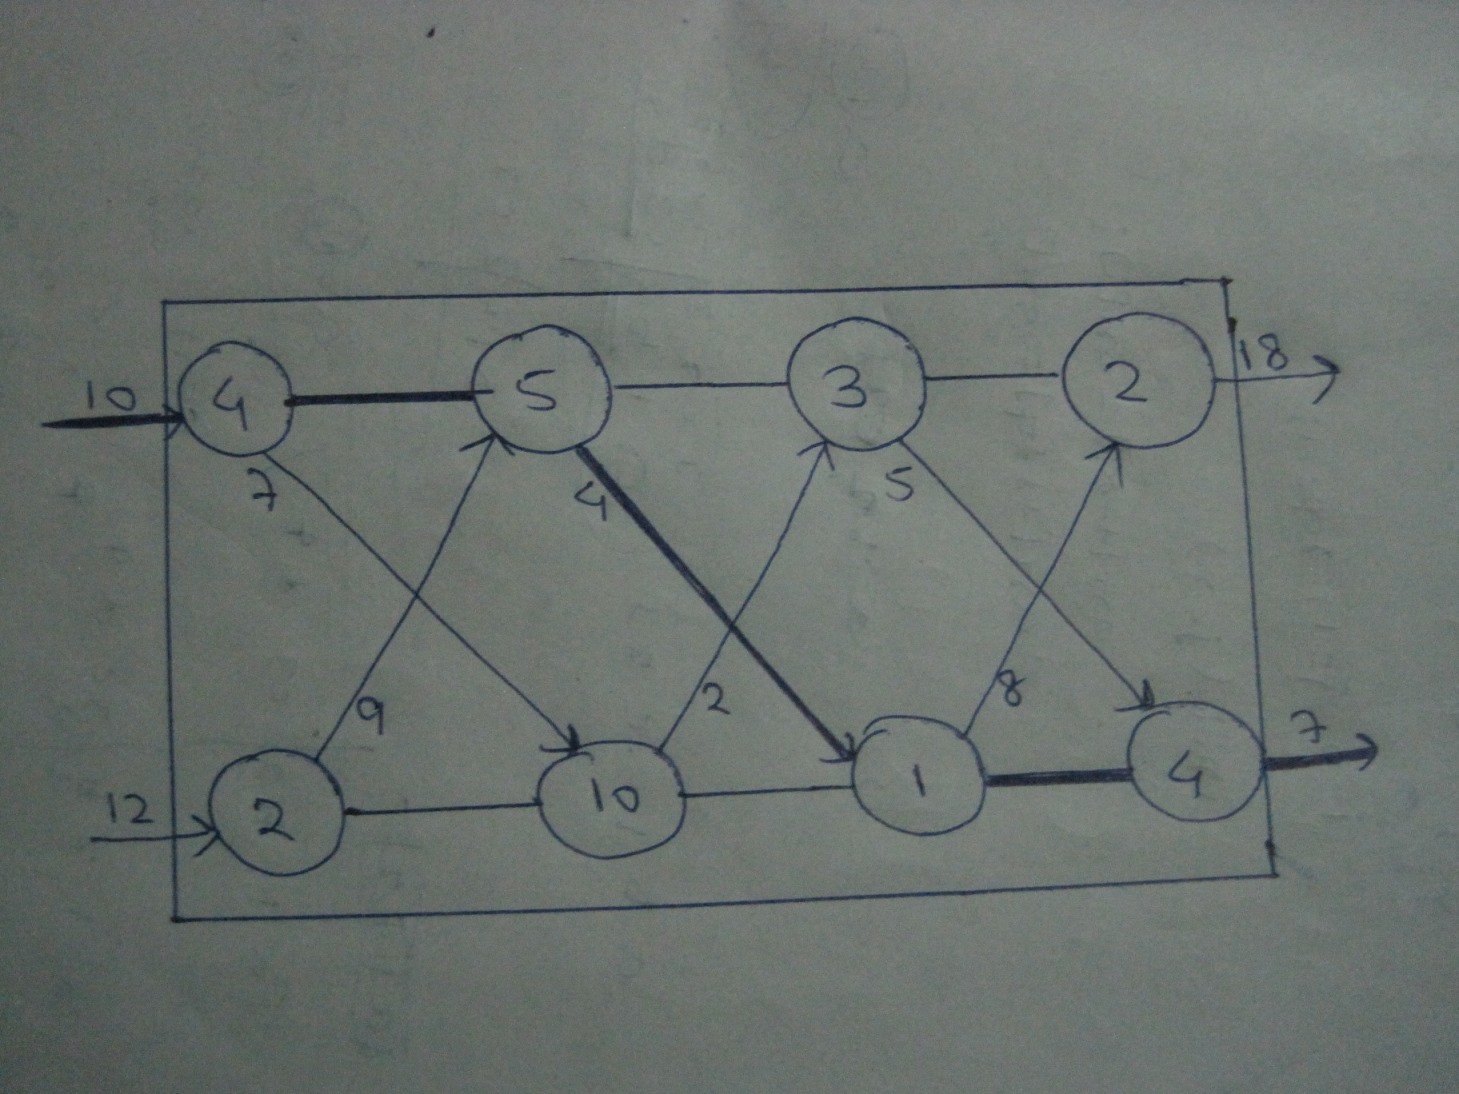 10 4 5 3 2 18
7 4 5
9 2 8
12 2 10 1 4 7